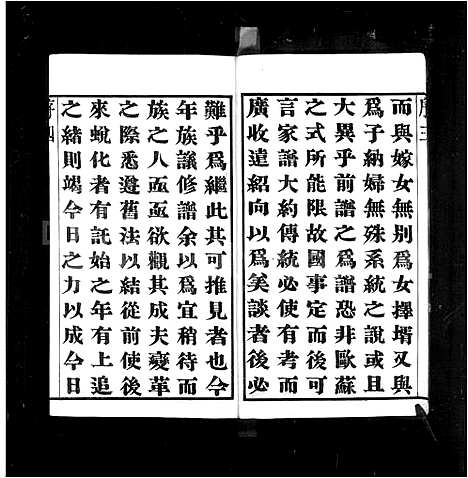 序三
而與嫁女無别爲女擇壻又與
爲子納婦無殊系統之說或且
大異乎前譜之爲譜恐非歐蘇
之式所能限故國事定而後可
言家譜大約傳統必使有考而
廣收遠紹向以爲美談者後必
難乎爲繼此其可推見者也今
年族議修譜余以爲宜稍待而
族之人亟亟欲觀其成夫變革
之際悉遵舊法以結從前使後
來蛻化者有託始之年有上追
之緒則竭今日之力以成今日
序四